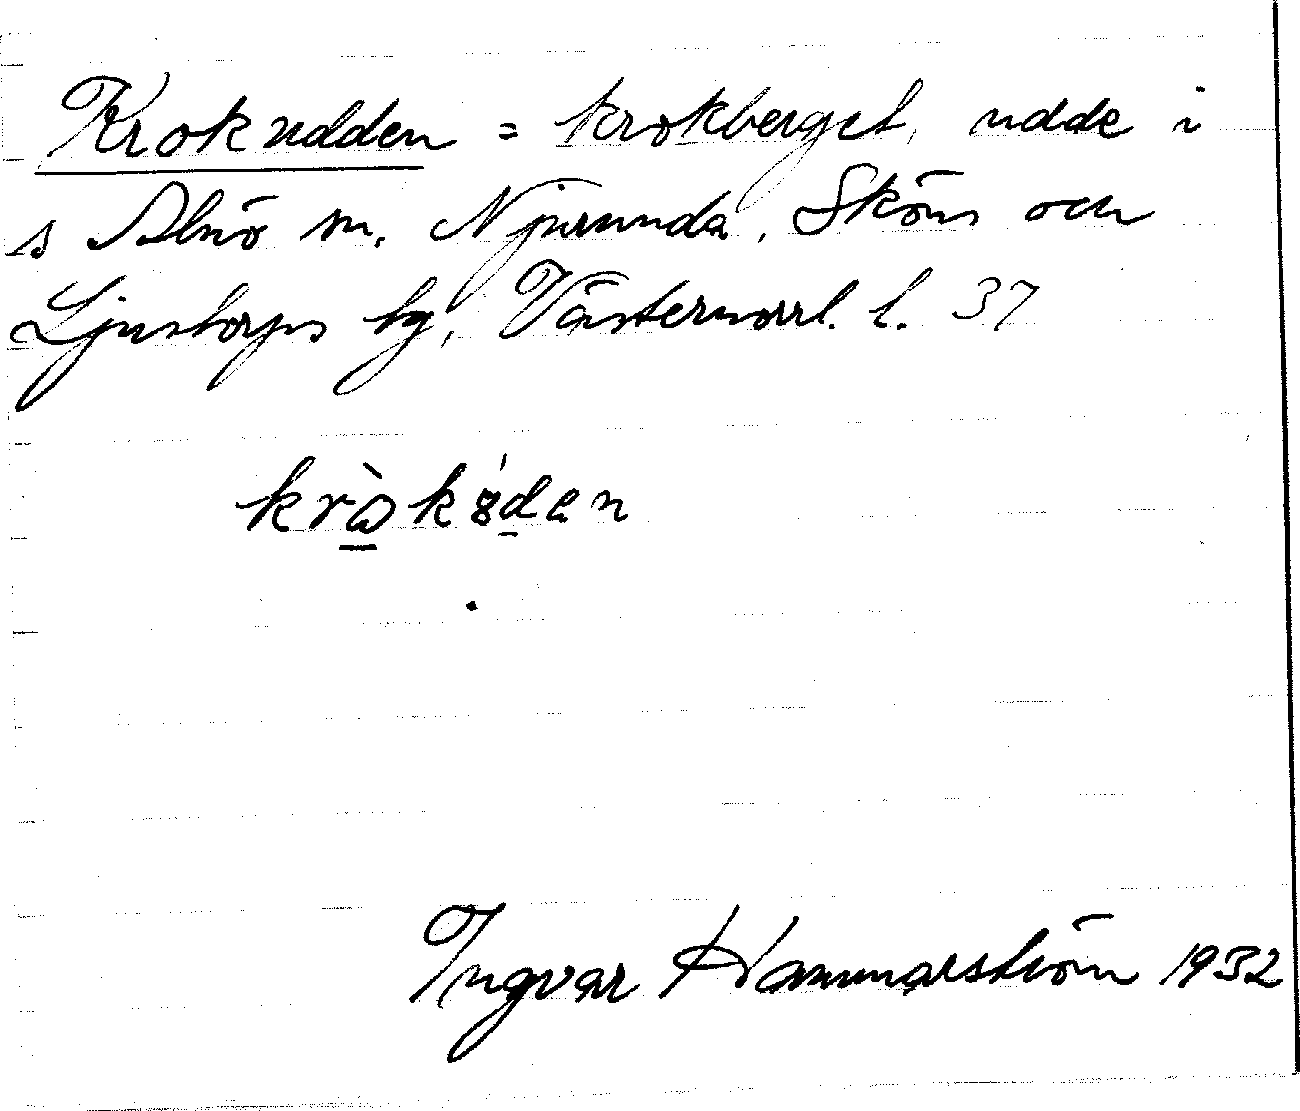 Krokudden = Krokberget, udde i
s Alnö sn. Njurunda, Sköns och
Ljustorps tg, Västernorrl. l. 37
kròkȣ́den
Ingvar Hammarström 1932